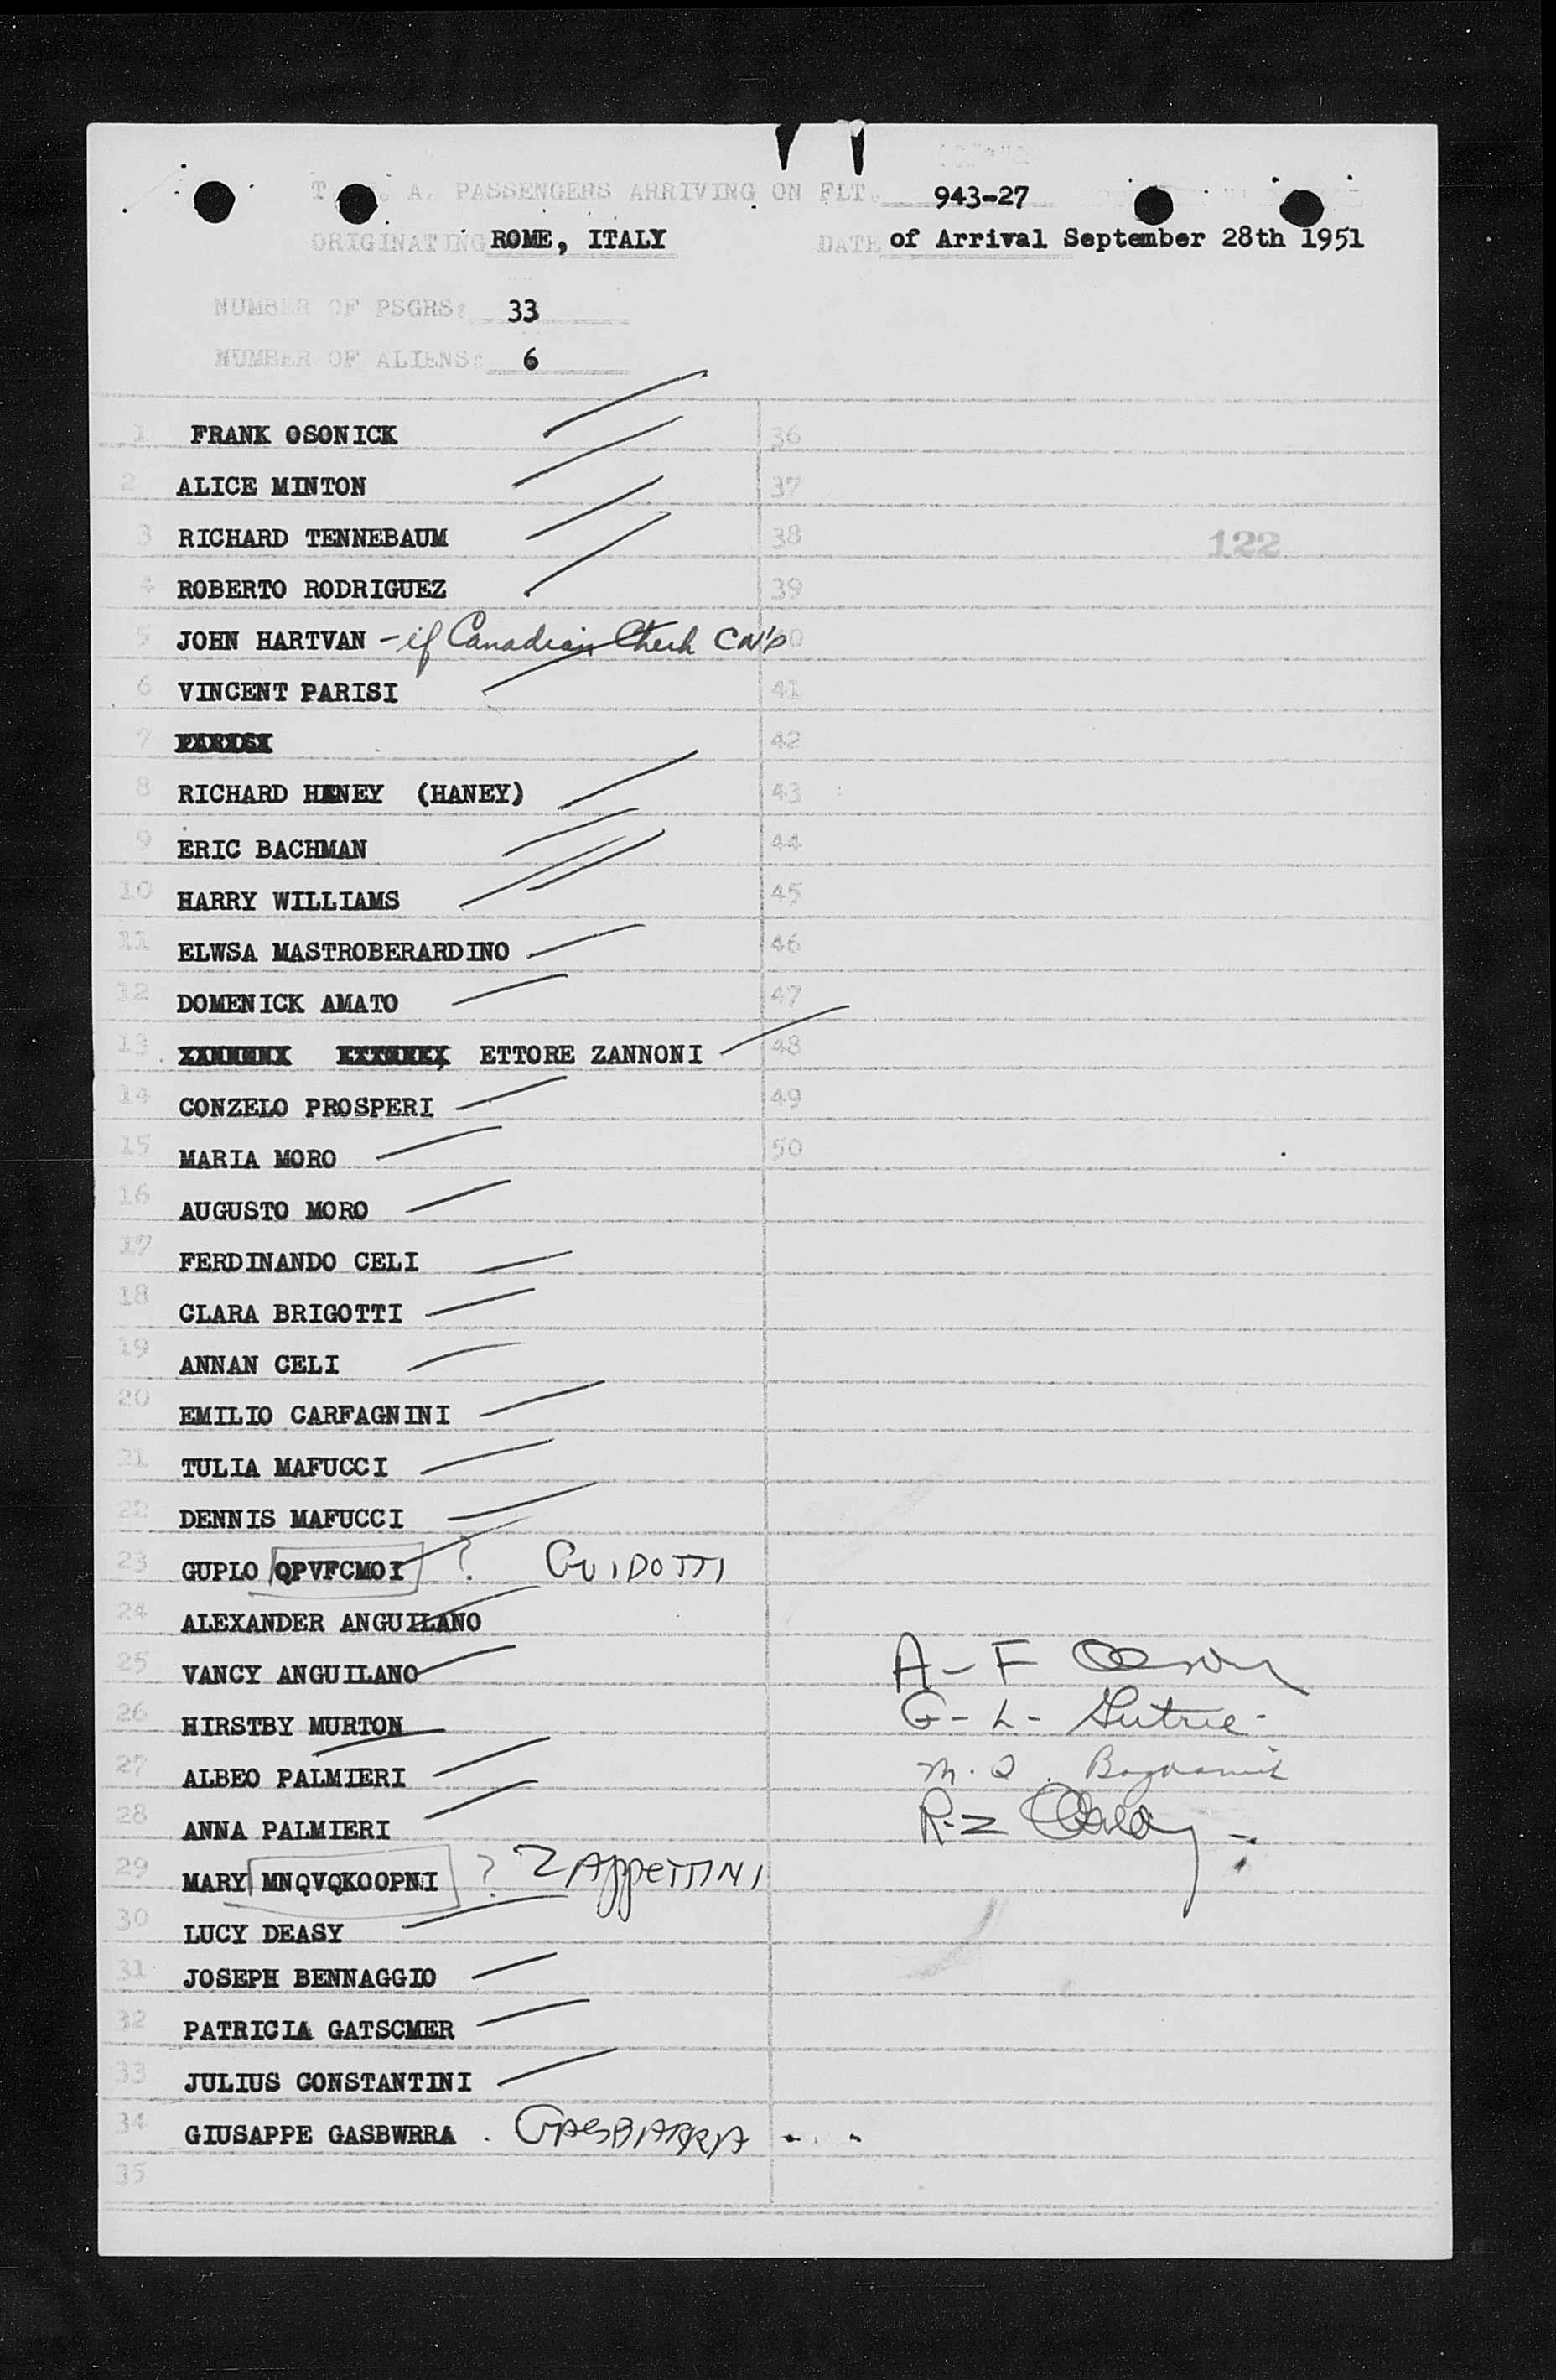 T. A. PASSENGERS ARRIVING ON FLT. 943-27
ORIGINATING ROME, ITALY DATE of Arrival September 28th 1951
NUMBER OF PSGRS: 33
NUMBER OF ALIENS: 6
1 FRANK OSONICK 36
2 ALICE MINTON 37
3 RICHARD TENNEBAUM 38 122
4 ROBERTO RODRIGUEZ 39
5 JOHN HARTVAN - if Canadian Check CN's 40
6 VINCENT PARISI 41
7 42
8 RICHARD HENEY (HANEY) 43
9 ERIC BACHMAN 44
10 HARRY WILLIAMS 45
11 ELWSA MASTROBERARDINO 46
12 DOMENICK AMATO 47
13 ETTORE ZANNONI 48
14 CONZELO PROSPERI 49
15 MARIA MORO 50
16 AUGUSTO MORO
17 FERDINANDO CELI
18 CLARA BRIGOTTI
19 ANNAN CELI
20 EMILIO CARFAGNINI
21 TULIA MAFUCCI
22 DENNIS MAFUCCI
23 GUPLO QPVFCMOI ? GUIDOTTI
24 ALEXANDER ANGUILANO
25 VANCY ANGUILANO A-F
26 HIRSTBY MURTON G-L- Gutrie-
27 ALBEO PALMIERI
28 ANNA PALMIERI R-Z
29 MARY MNQVQKOOPNI ? ZAppETTINI
30 LUCY DEASY
31 JOSEPH BENNAGGIO
32 PATRICIA GATSCMER
33 JULIUS CONSTANTINI
34 GIUSAPPE GASBWRRA . GASBARRA
35